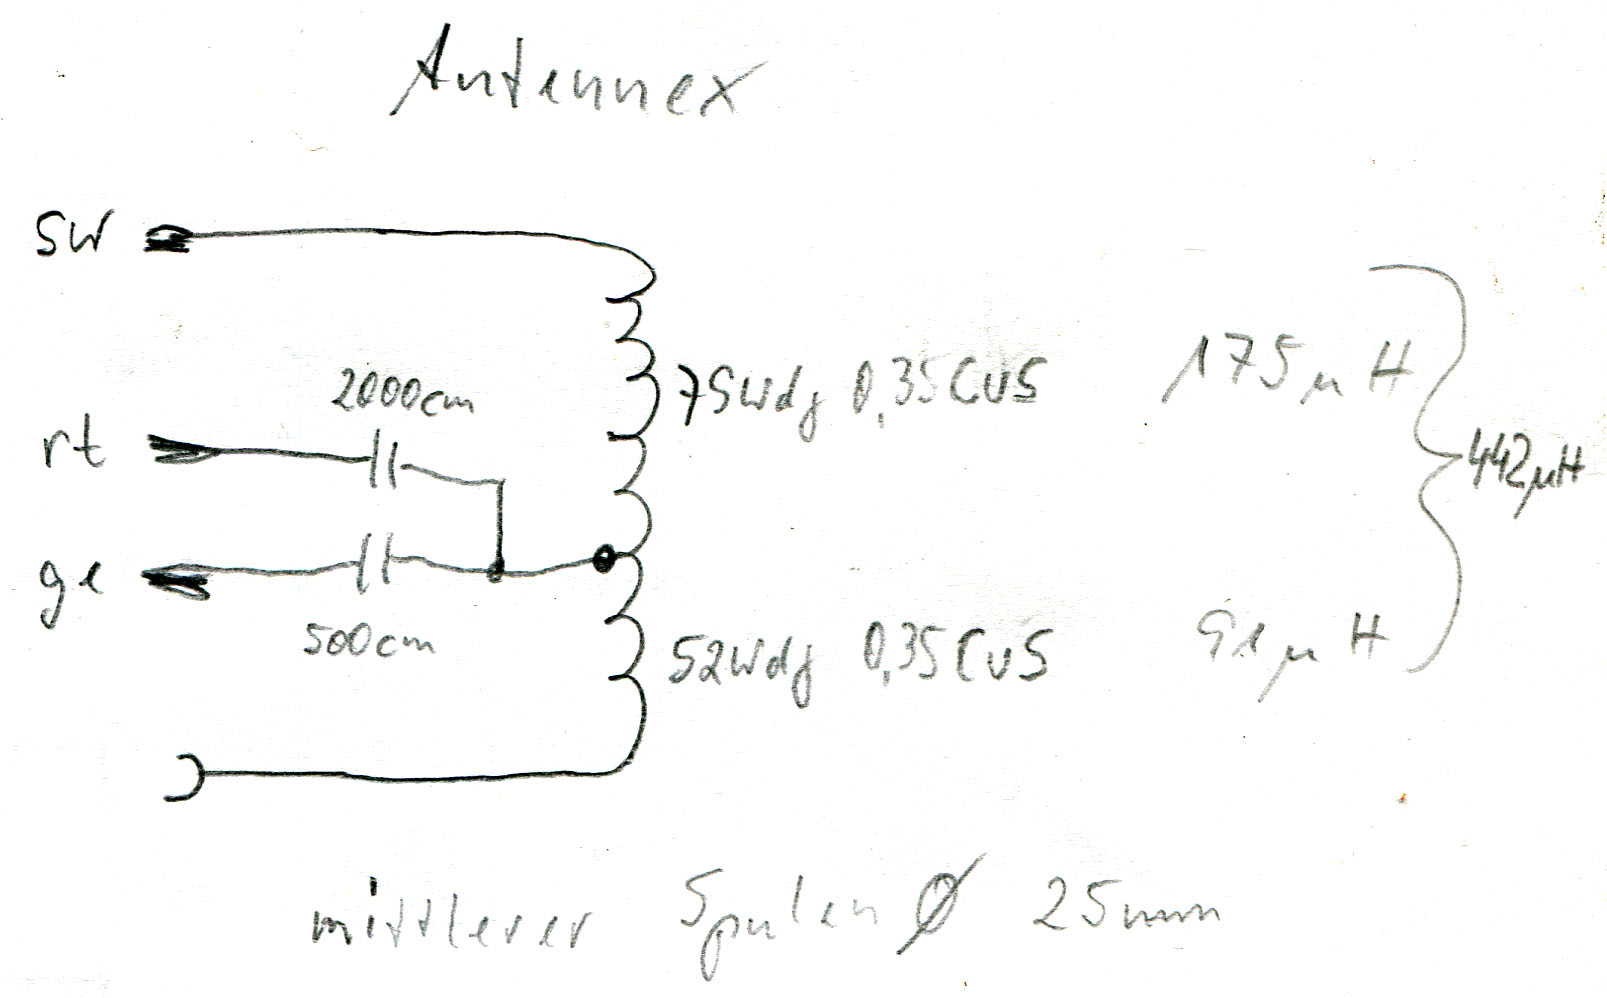 Antennex
sw
2000cm
75Wdg 0,35CuS 175µH
rt
442µH
ge
500cm
52Wdg 0,35CuS 91µH
mittlerer Spulen Ø 25mm